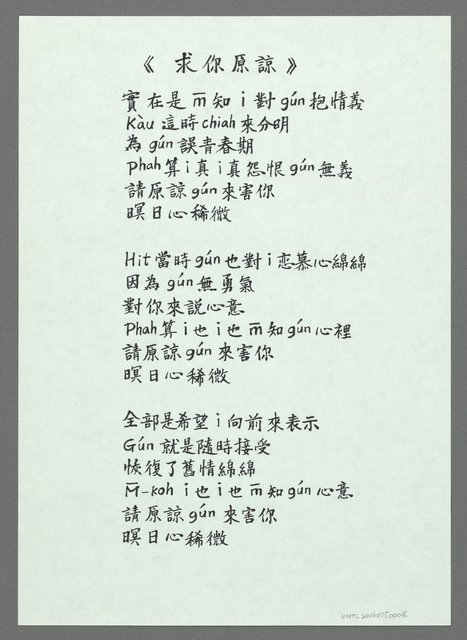 《求你原諒》
實在是 m̄ 知 i 對 gún 抱情義
Kàu 這時 chiah 來分明
為 gún 誤青春期
Phah 算 i 真 i 真怨恨 gún 無義
請原諒 gún 來害你
暝日心稀微
Hit 當時 gún 也對 i 恋慕心綿綿
因為 gún 無勇氣
對你來說心意
Phah 算 i 也 i 也 m̄ 知 gún 心裡
請原諒 gún 來害你
暝日心稀微
全部是希望 i 向前來表示
Gún 就是隨時接受
恢復了舊情綿綿
M̄-koh i 也 i 也 m̄ 知 gún 心意
請原諒 gún 來害你
暝日心稀微
NMTL20060750004